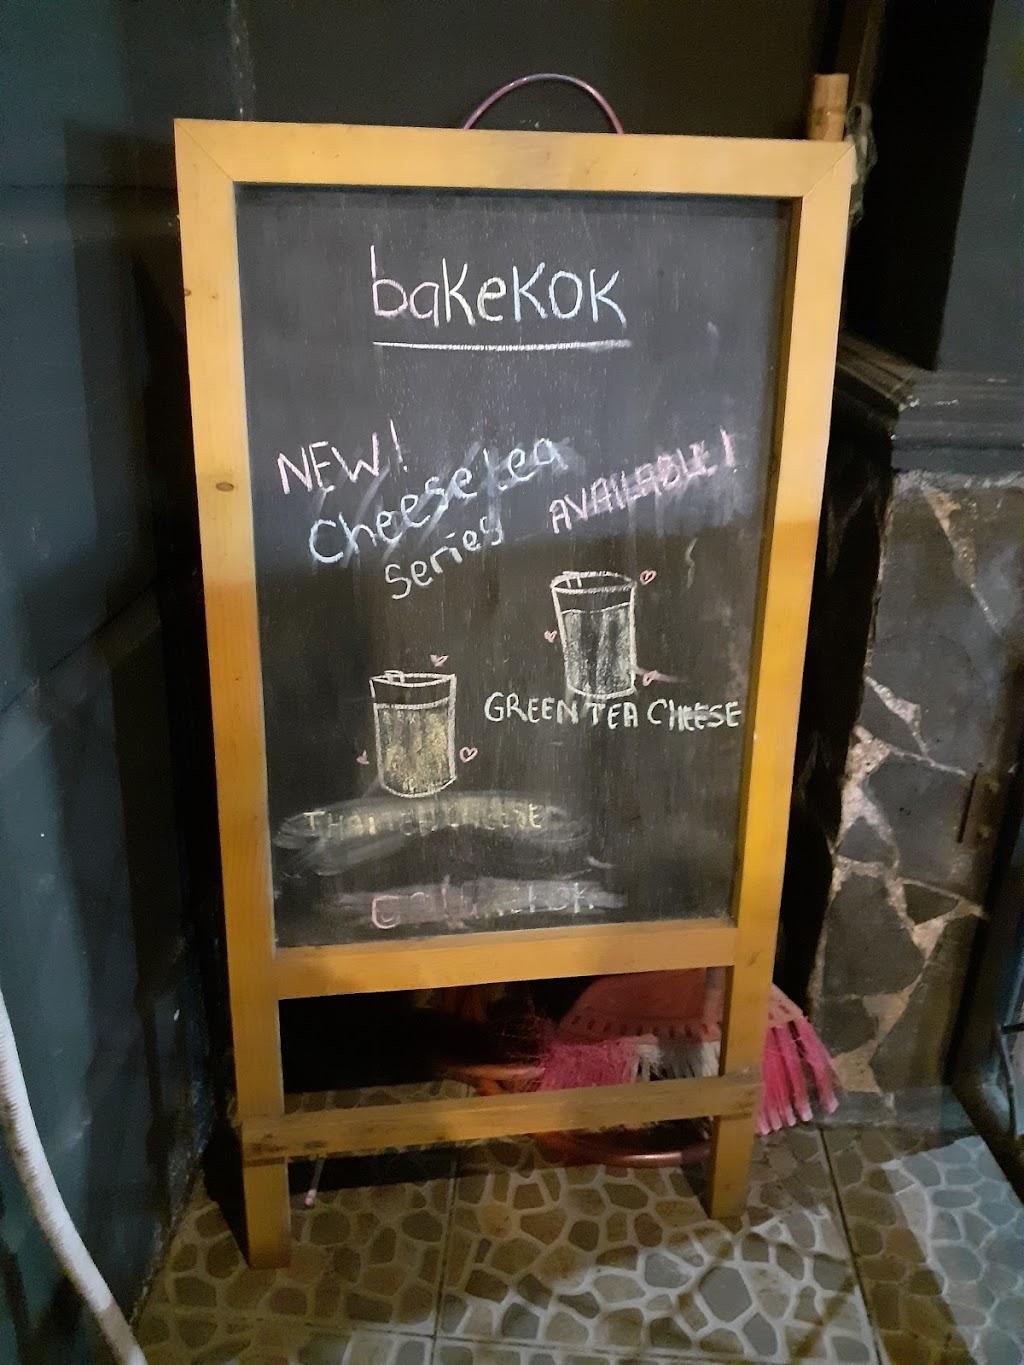 bakeKOK
NEW!
Cheese tea
series
AVAILABLE!
GREEN TEA CHEESE
THAI TEA CHEESE